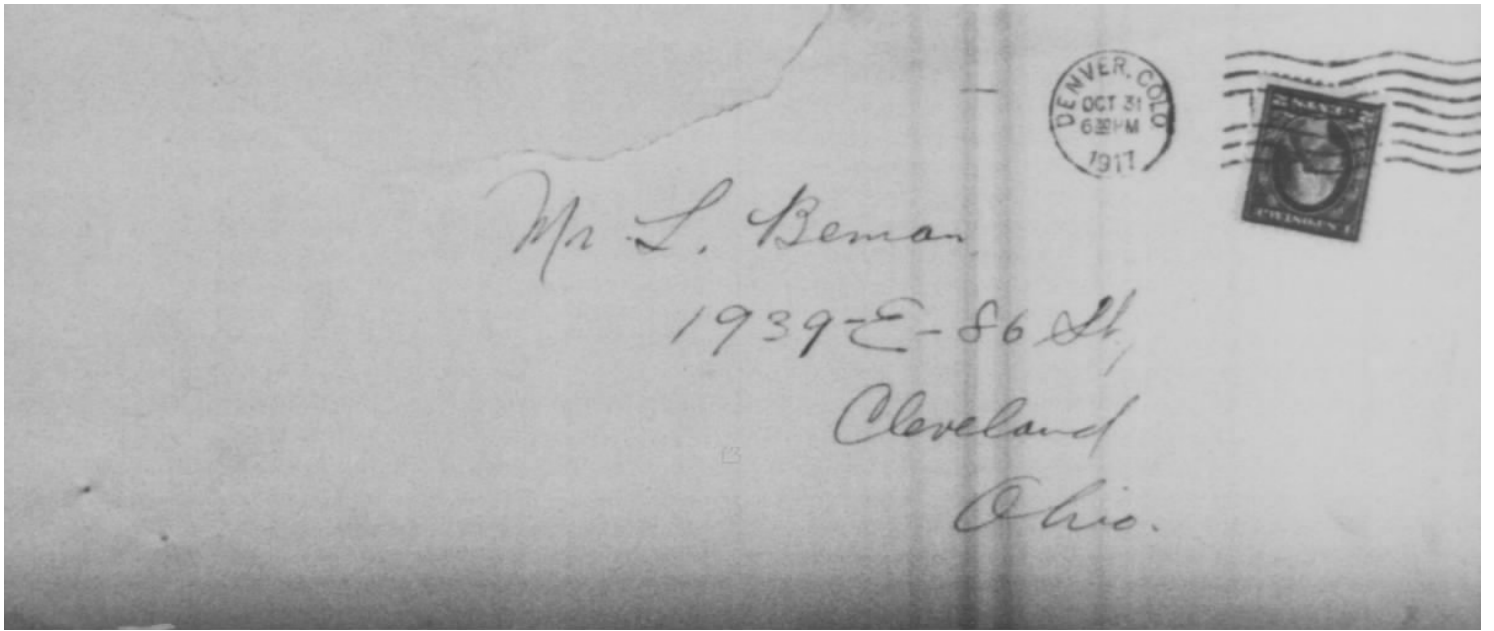 DENVER, COLO
OCT 31
6 30 PM
1917
Mr L. Beman
1939-E-86 St,
Cleveland
Ohio.
13